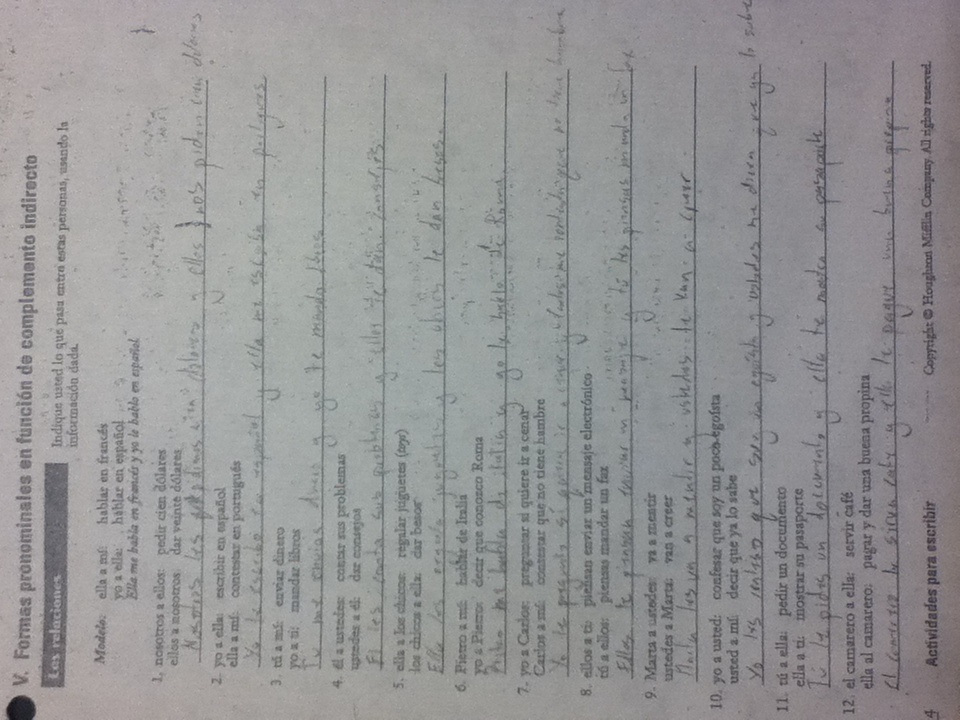 V. Formas pronominales en función de complemento indirecto
Las relaciones
Indique usted lo que pasa entre estas personas, usando la
información dada.
Modelo: ella a mí: hablar en francés
yo a ella: hablar en español
Ella me habla en francés y yo le hablo en español.
1. nosotros a ellos: pedir cien dólares
ellos a nosotros: dar veinte dólares
Nosotros les pedimos cien dolares y ellos nos piden cien dolares
2. yo a ella: escribir en español
ella a mí: contestar en portugués
Yo le escribo en español y ella me en portugues
3. tú a mí: enviar dinero
yo a ti: mandar libros
Tú me envias dinero y yo te mando libros
4. él a ustedes: contar sus problemas
ustedes a él: dar consejos
El les conta sus problemas y ellos le dan consejos
5. ella a los chicos: regalar juguetes (toys)
los chicos a ella: dar besos
Ella les regala juguetes y los chicos le dan besos.
6. Pietro a mí: hablar de Italia
yo a Pietro: decir que conozco Roma
Pietro me habla de italia y yo le hablo de Roma
7. yo a Carlos: preguntar si quiere ir a cenar
Carlos a mí: contestar que no tiene hambre
Yo le pregunto si quiere ir a cenar y Carlos me que no tiene hambre
8. ellos a ti: piensan enviar un mensaje electrónico
tú a ellos: piensas mandar un fax
Ellos te piensan enviar un mensaje y tú les piensas manda un fax
9. Marta a ustedes: va a mentir
ustedes a Marta: van a creer
Marta les va a mentir y ustedes te van a creer
10. yo a usted: confesar que soy un poco egoísta
usted a mí: decir que ya lo sabe
Yo les confieso que soy un egoista y ustedes me dicen que ya lo sabe
11. tú a ella: pedir un documento
ella a ti: mostrar su pasaporte
Tú le pides un documento y ella te su pasaporte
12. el camarero a ella: servir café
ella al camarero: pagar y dar una buena propina
El camarero le sirva cafe y ella le pague una buena propina
4 Actividades para escribir
Copyright © Houghton Mifflin Company. All rights reserved.